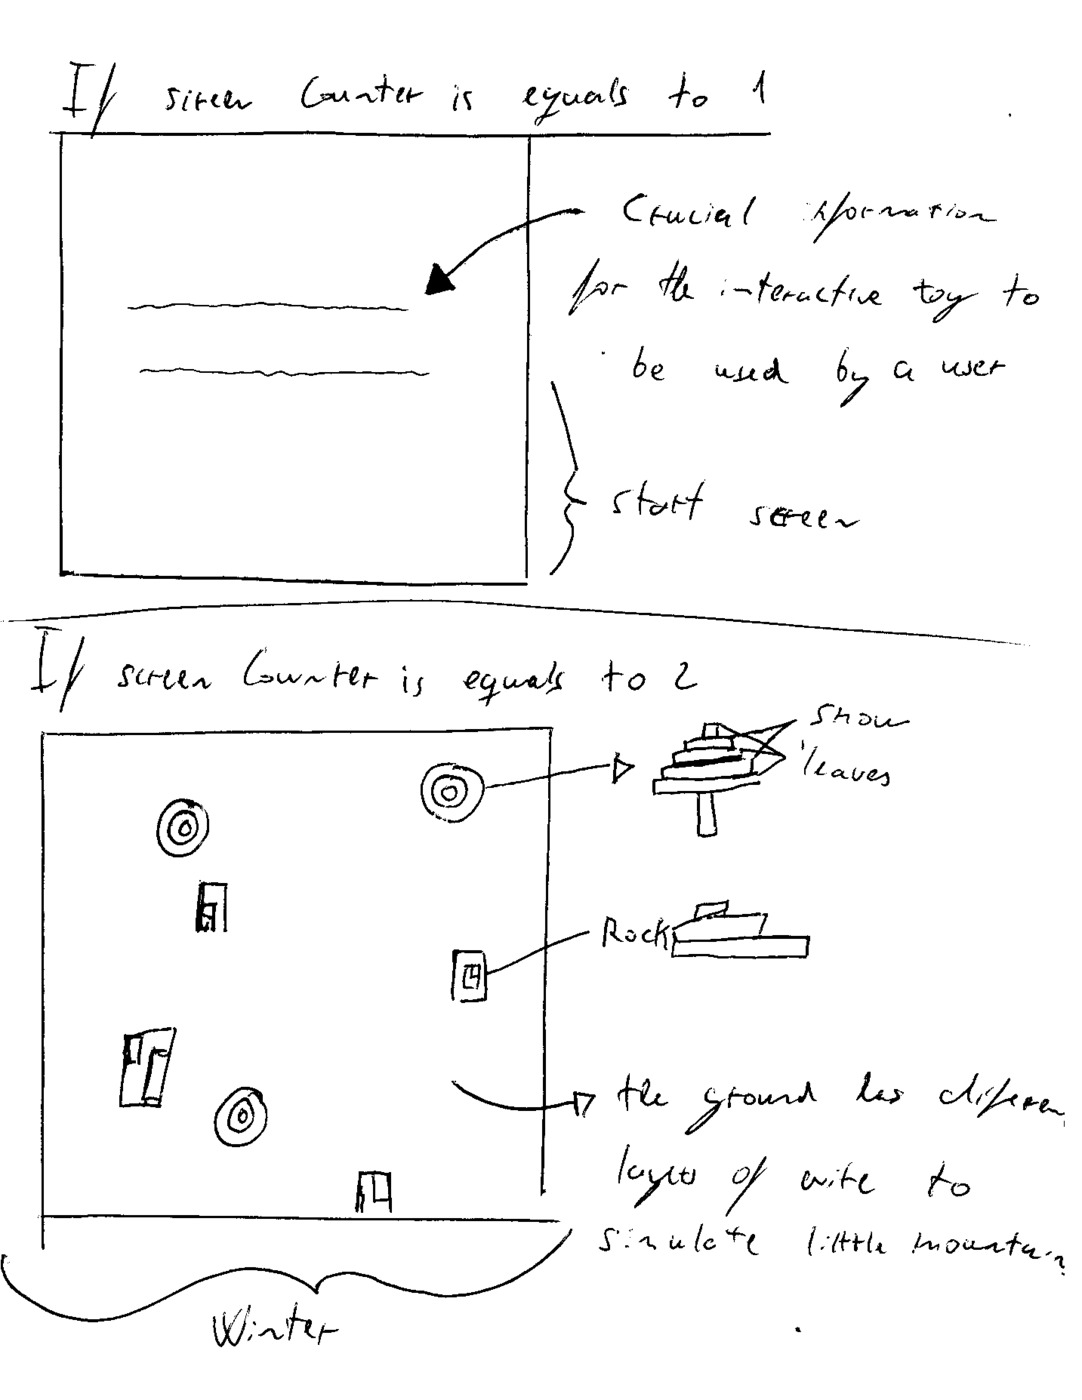 If screen Counter is equals to 1
Crucial information
for the interactive toy to
be used by a user
start screen
If screen Counter is equals to 2
snow
leaves
Rock
the ground has differen
layers of wite to
simulate little mountain
Winter